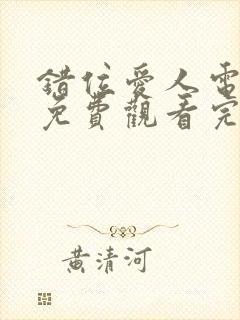 錯位愛人電
免費觀看完
黃清河